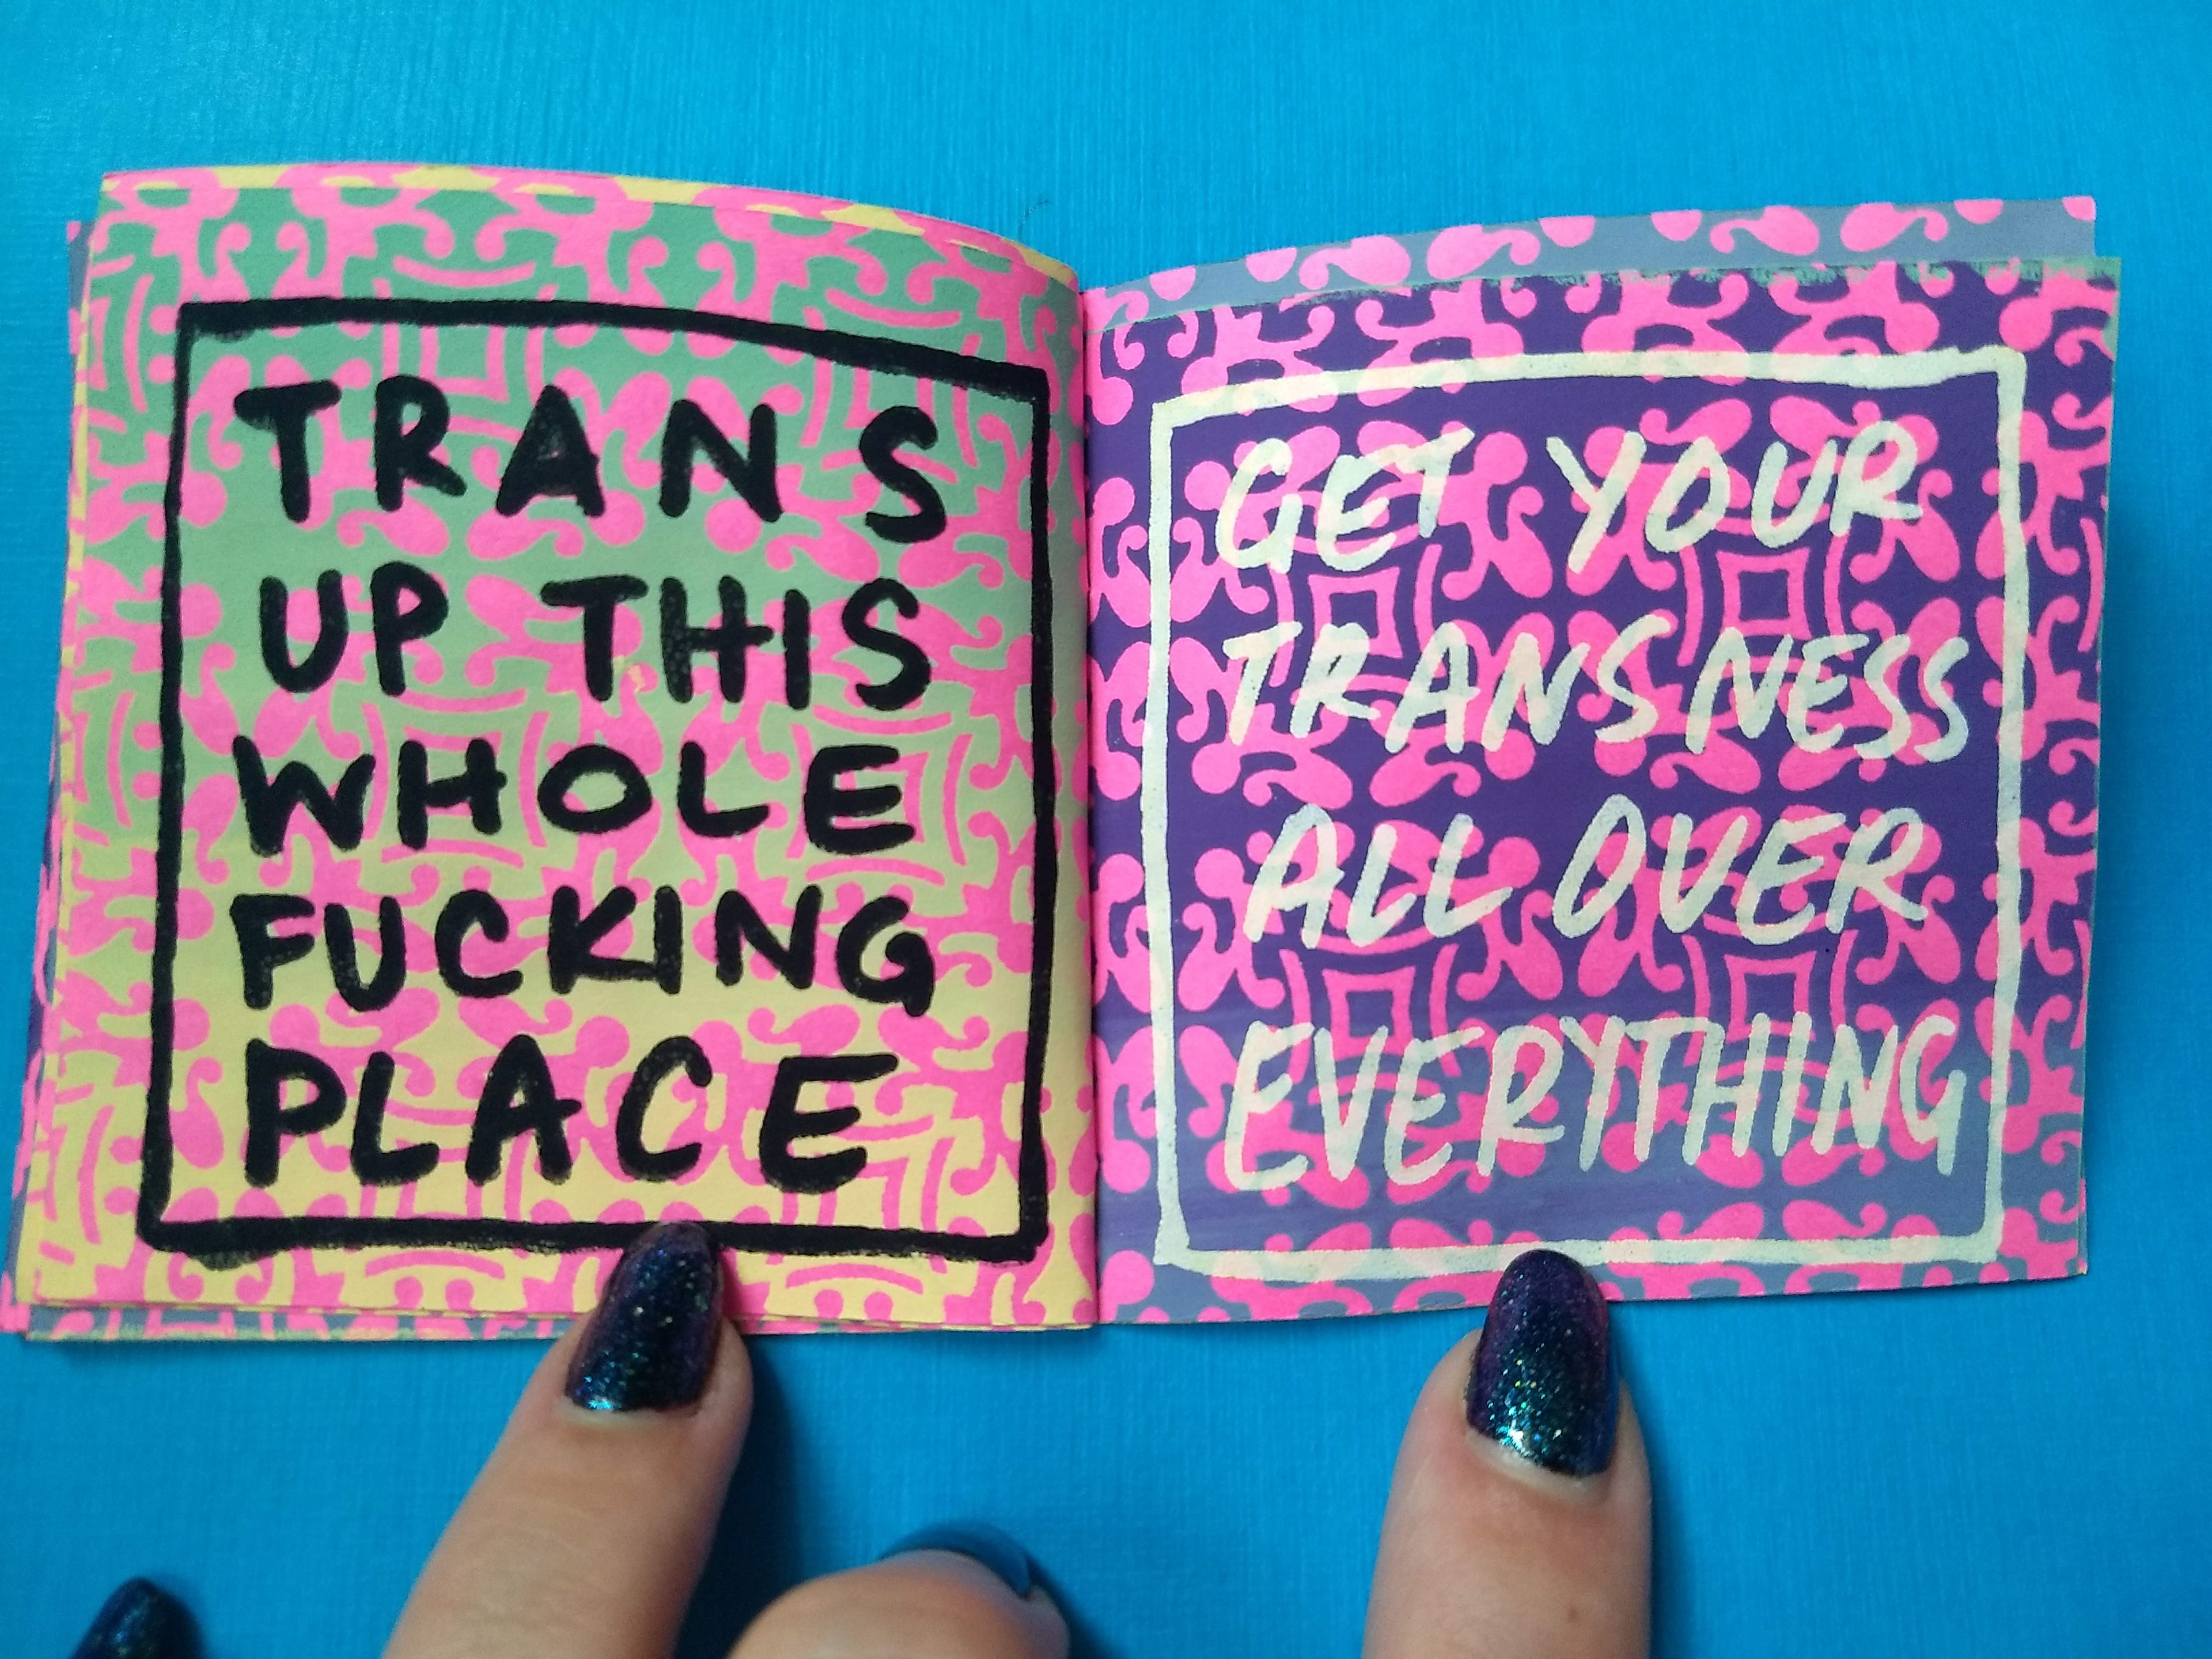 TRANS
UP THIS
WHOLE
FUCKING
PLACE
GET YOUR
TRANSNESS
ALL OVER
EVERYTHING